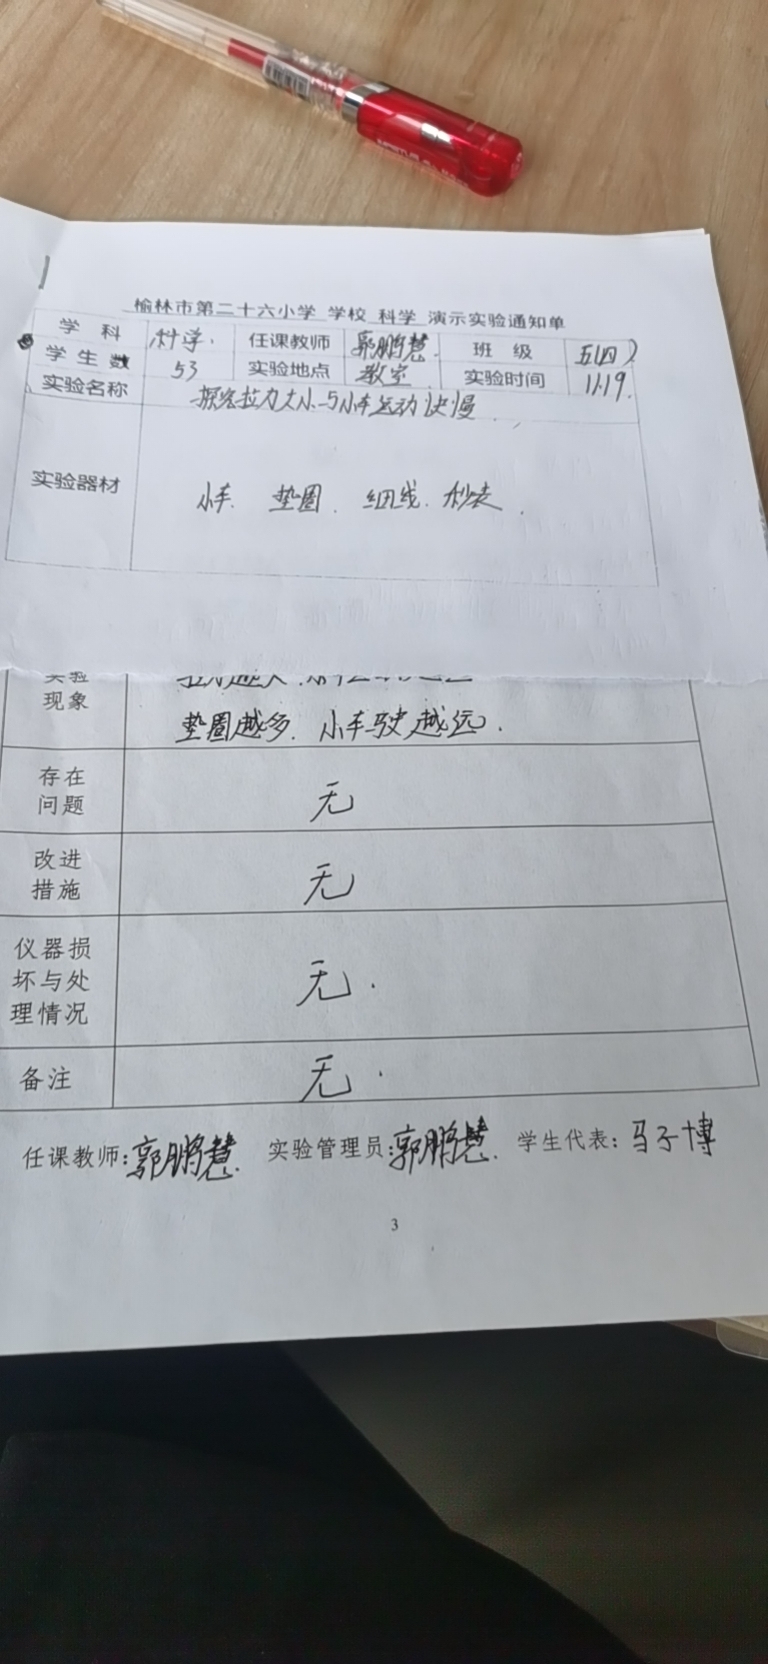 榆林市第二十六小学 学校 科学 演示实验通知单
学 科 科学. 任课教师 郭鹏慧 班 级 五(四)
学生数 53 实验地点 教室 实验时间 11.19.
实验名称 探究拉力大小与小车运动快慢
实验器材 小车. 垫圈. 细线. 秒表.
实验
现象 垫圈越多. 小车驶越远.
存在
问题 无
改进
措施 无
仪器损
坏与处
理情况 无.
备注 无.
任课教师:郭鹏慧. 实验管理员:郭鹏慧. 学生代表: 马子博
3